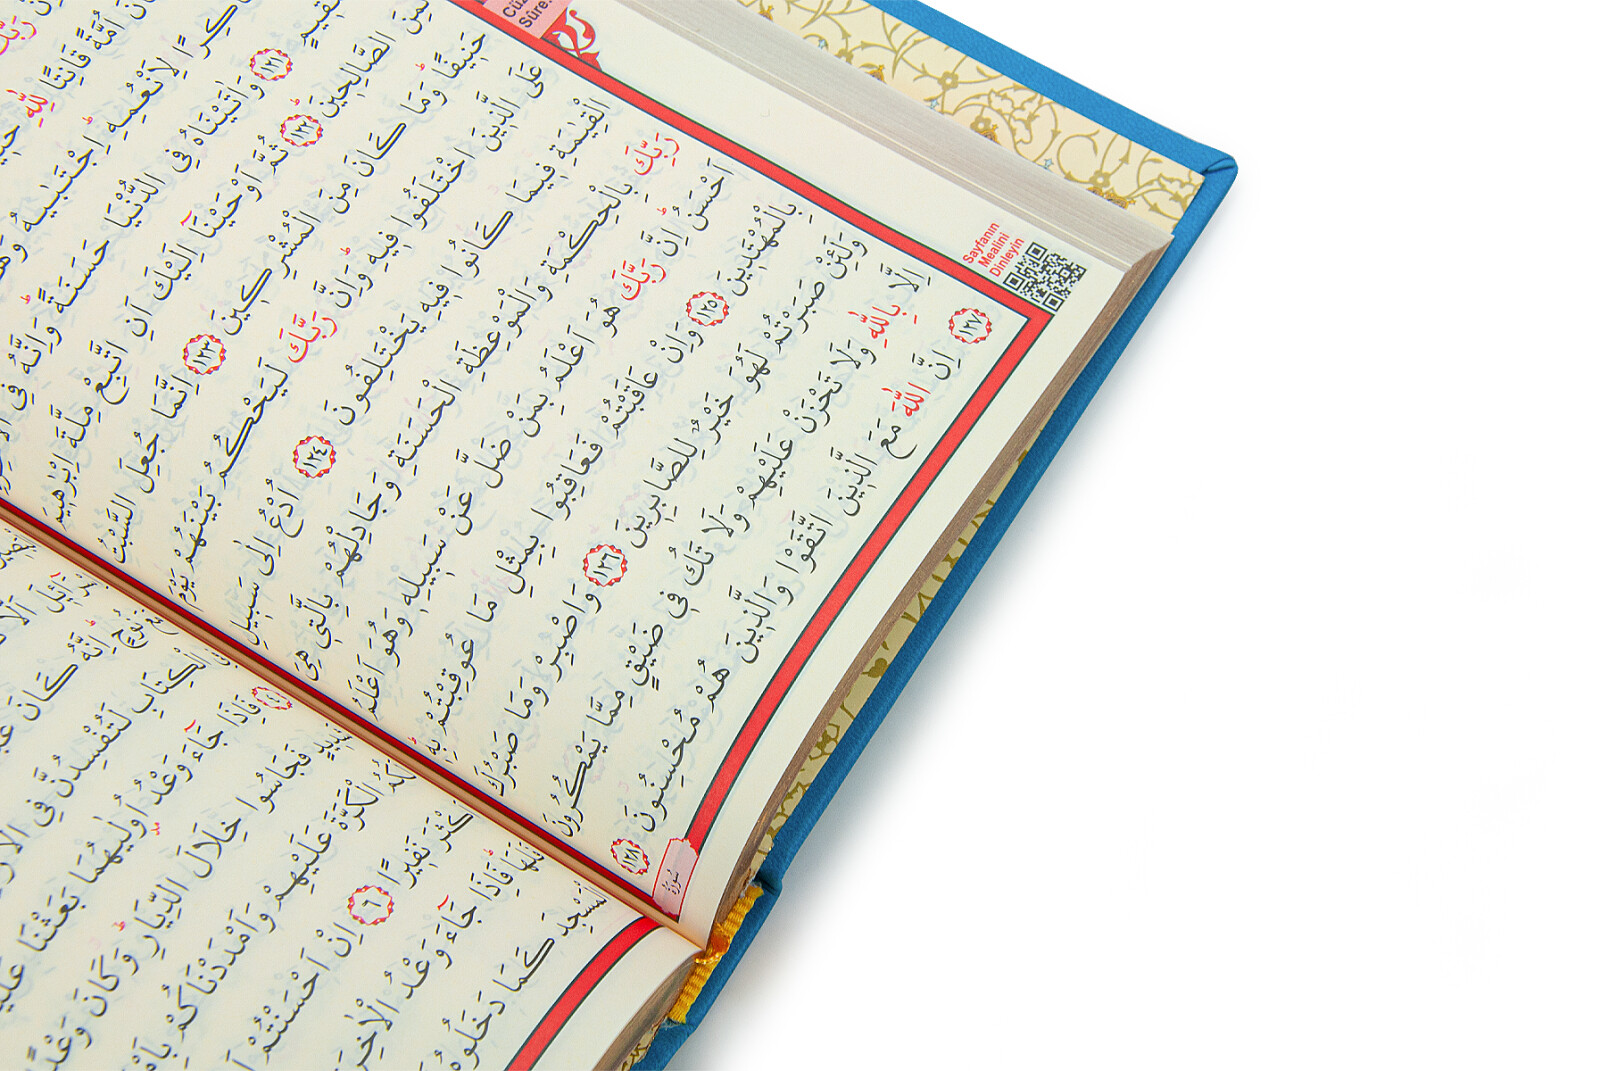 Sûre
قَانِتًا لِلّٰهِ
شَاكِرًا لِاَنْعُمِهِ اِجْتَبٰيهُ
١٢١ وَاٰتَيْنَاهُ فِي الدُّنْيَا حَسَنَةً وَاِنَّهُ فِي
لَمِنَ الصَّالِحِينَ ١٢٢ ثُمَّ اَوْحَيْنَا اِلَيْكَ اَنِ اتَّبِعْ مِلَّةَ اِبْرٰهِيمَ
حَنِيفًا وَمَا كَانَ مِنَ الْمُشْرِكِينَ ١٢٣ اِنَّمَا جُعِلَ السَّبْتُ
عَلَى الَّذِينَ اخْتَلَفُوا فِيهِ وَاِنَّ رَبَّكَ لَيَحْكُمُ بَيْنَهُمْ يَوْمَ
الْقِيٰمَةِ فِيمَا كَانُوا فِيهِ يَخْتَلِفُونَ ١٢٤ اُدْعُ اِلٰى سَبِيلِ
رَبِّكَ بِالْحِكْمَةِ وَالْمَوْعِظَةِ الْحَسَنَةِ وَجَادِلْهُمْ بِالَّتِي هِيَ
اَحْسَنُ اِنَّ رَبَّكَ هُوَ اَعْلَمُ بِمَنْ ضَلَّ عَنْ سَبِيلِهِ وَهُوَ اَعْلَمُ
بِالْمُهْتَدِينَ ١٢٥ وَاِنْ عَاقَبْتُمْ فَعَاقِبُوا بِمِثْلِ مَا عُوقِبْتُمْ بِهِ
وَلَئِنْ صَبَرْتُمْ لَهُوَ خَيْرٌ لِلصَّابِرِينَ ١٢٦ وَاصْبِرْ وَمَا صَبْرُكَ
اِلَّا بِاللّٰهِ وَلَا تَحْزَنْ عَلَيْهِمْ وَلَا تَكُ فِي ضَيْقٍ مِمَّا يَمْكُرُونَ
١٢٧ اِنَّ اللّٰهَ مَعَ الَّذِينَ اتَّقَوْا وَالَّذِينَ هُمْ مُحْسِنُونَ ١٢٨
Sayfanın
Mealini
Dinleyin
نُوحٍ اِنَّهُ كَانَ
الْكِتَابِ لَتُفْسِدُنَّ فِي
٤ فَاِذَا جَاءَ وَعْدُ اُولٰيهُمَا بَعَثْنَا
فَجَاسُوا خِلَالَ الدِّيَارِ وَكَانَ وَعْدًا
لَكُمُ الْكَرَّةَ عَلَيْهِمْ وَاَمْدَدْنَاكُمْ
اَكْثَرَ نَفِيرًا ٦ اِنْ اَحْسَنْتُمْ
فَلَهَا فَاِذَا جَاءَ وَعْدُ الْاٰخِرَةِ
الْمَسْجِدَ كَمَا دَخَلُوهُ